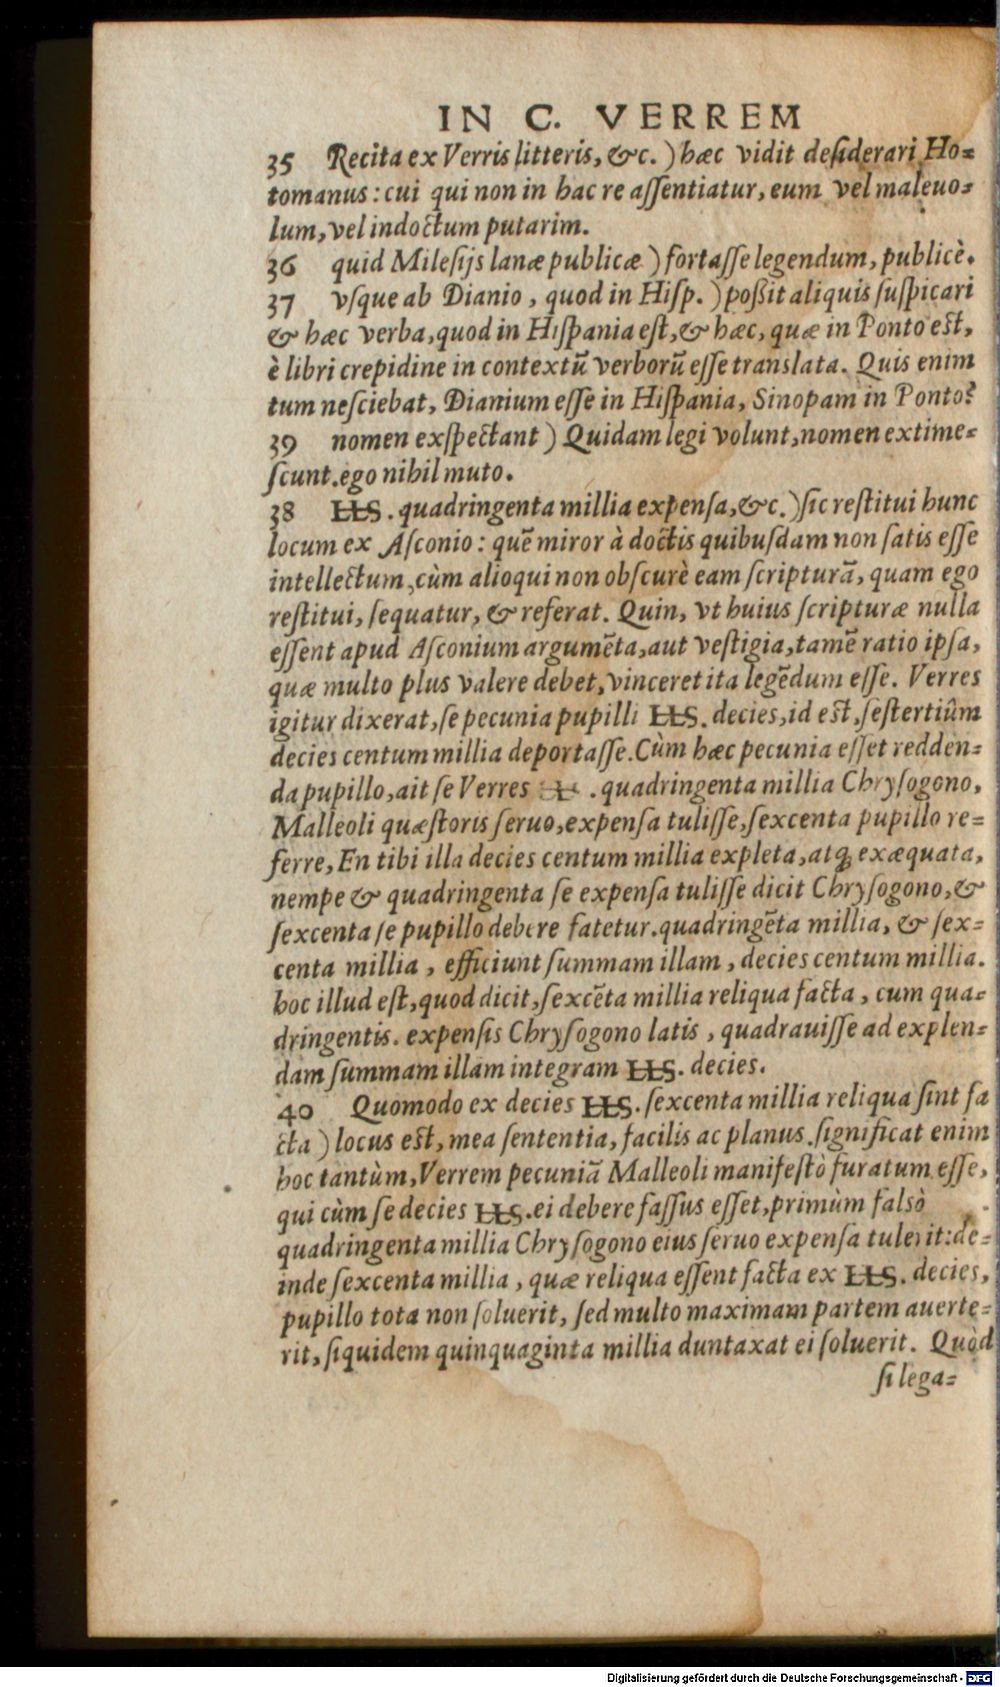 IN C. VERREM
35 Recita ex Verris litteris, &c. ) hæc vidit desiderari Ho=
tomanus : cui qui non in hac re assentiatur, eum vel maleuo=
lum, vel indoctum putarim.
36 quid Milesijs lanæ publicæ ) fortasse legendum, publicè.
37 vsque ab Dianio , quod in Hisp. ) poßit aliquis suspicari
& hæc verba, quod in Hispania est, & hæc, quæ in Ponto est,
è libri crepidine in contextũ verborũ esse translata. Quis enim
tum nesciebat, Dianium esse in Hispania, Sinopam in Ponto?
39 nomen exspectant ) Quidam legi volunt, nomen extime=
scunt. ego nihil muto.
38 HS. quadringenta millia expensa, &c. ) sic restitui hunc
locum ex Asconio : quẽ miror à doctis quibusdam non satis esse
intellectum, cùm alioqui non obscurè eam scripturã, quam ego
restitui, sequatur, & referat. Quin, vt huius scripturæ nulla
essent apud Asconium argumẽta, aut vestigia, tamẽ ratio ipsa,
quæ multo plus valere debet, vinceret ita legẽdum esse. Verres
igitur dixerat, se pecunia pupilli HS. decies, id est, sestertiûm
decies centum millia deportasse. Cùm hæc pecunia esset redden=
da pupillo, ait se Verres . quadringenta millia Chrysogono,
Malleoli quæstoris seruo, expensa tulisse, sexcenta pupillo re=
ferre, En tibi illa decies centum millia expleta, atq; exæquata,
nempe & quadringenta se expensa tulisse dicit Chrysogono, &
sexcenta se pupillo debere fatetur. quadringẽta millia, & sex=
centa millia , efficiunt summam illam , decies centum millia.
hoc illud est, quod dicit, sexcẽta millia reliqua facta , cum qua=
dringentis. expensis Chrysogono latis , quadrauisse ad explen=
dam summam illam integram HS. decies.
40 Quomodo ex decies HS. sexcenta millia reliqua sint fa
cta ) locus est, mea sententia, facilis ac planus. significat enim
hoc tantùm, Verrem pecuniã Malleoli manifestò furatum esse,
qui cùm se decies HS. ei debere fassus esset, primùm falsò
quadringenta millia Chrysogono eius seruo expensa tulerit: de=
inde sexcenta millia , quæ reliqua essent facta ex HS. decies,
pupillo tota non soluerit, sed multo maximam partem auerte=
rit, siquidem quinquaginta millia duntaxat ei soluerit. Quòd
si lega=
Digitalisierung gefördert durch die Deutsche Forschungsgemeinschaft - DFG